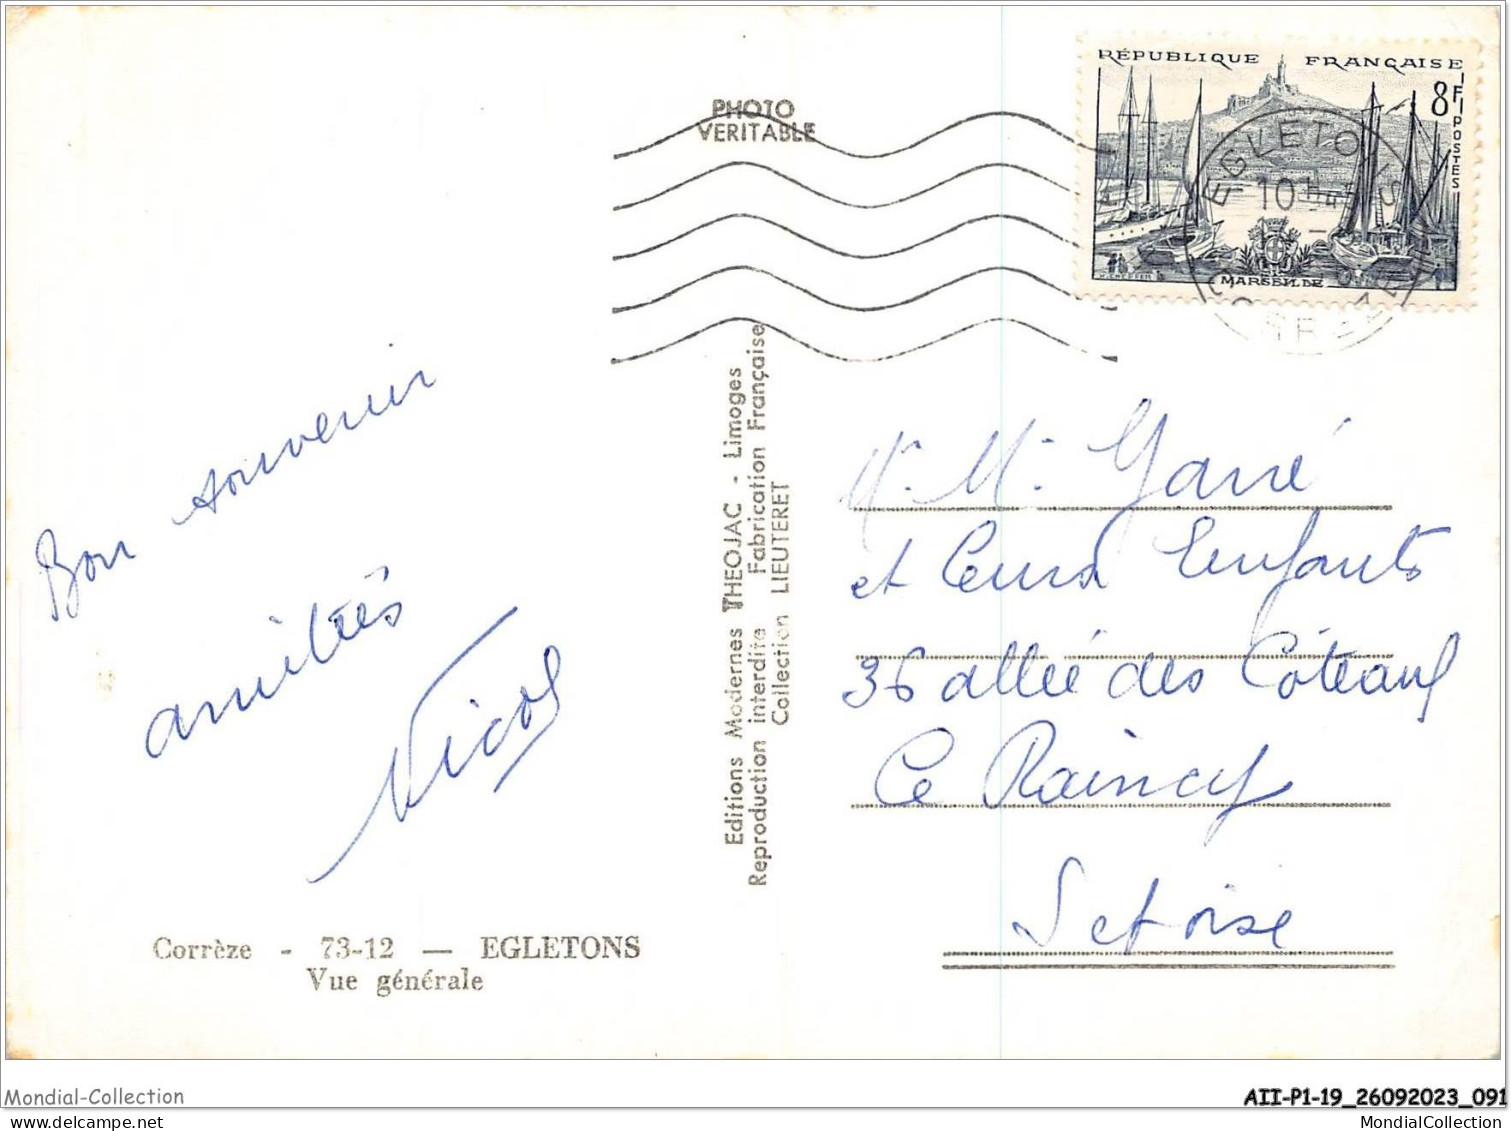 PHOTO
VERITABLE
RÉPUBLIQUE FRANÇAISE
8F
POSTES
MARSEILLE
EGLETONS
10H
CORREZE
Bon souvenir
amitiés
Nicol
Editions Modernes THEOJAC - Limoges
Reproduction interdite Fabrication Française
Collection LIEUTERET
Mr. M. Garré
et leurs Enfants
36 allée des Côteaux
Le Raincy
S et Oise
Corrèze - 73-12 — EGLETONS
Vue générale
Mondial-Collection
AII-P1-19_26092023_091
MondialCollection.com